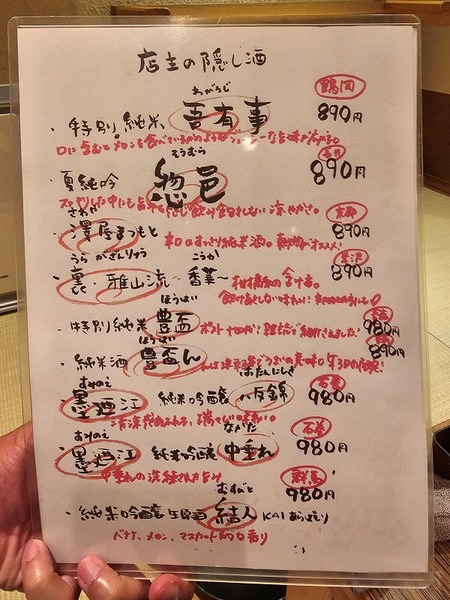 店主の隠し酒
わがうじ 鶴岡
・特別純米 吾有事 890円
口に含むとメロンを食べているかのような
そうむら 長井
・夏純吟 惣邑 890円
さわや 京都
・澤屋まつもと 890円
辛口のすっきり純米酒。
うら がさんりゅう こうか 米沢
・裏・雅山流 〜香華〜 890円
柑橘系の含み香。
ほうはい
・特別純米 豊盃 980円
ほうはい
・純米酒 豊盃ん 890円
すみのえ はたんにしき 石巻
・墨廼江 純米吟醸 八反錦 980円
すみのえ なかだれ 石巻
・墨廼江 純米吟醸 中垂れ 980円
中垂れの洗練された旨み
むすびと 群馬
980円
・純米吟醸生原酒 結人 KAI あらばしり
バナナ、メロン、マスカット的な香り